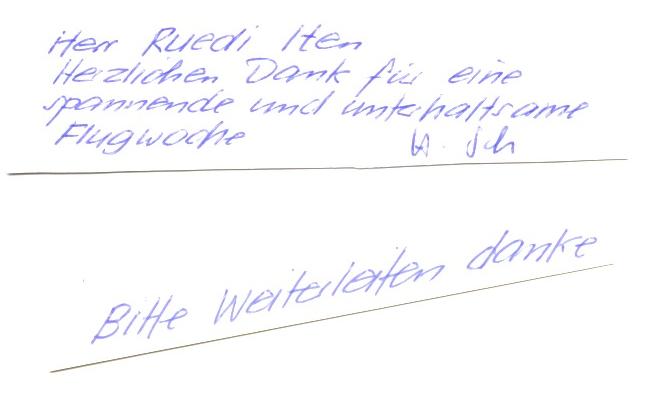 Herr Ruedi Iten
Herzlichen Dank für eine
spannende und unterhaltsame
Flugwoche
Bitte Weiterleiten danke